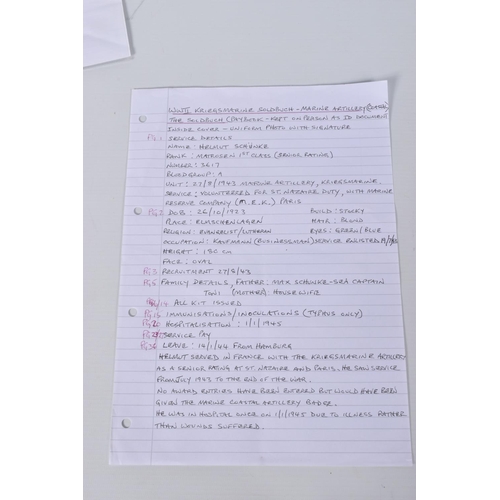 WWII KRIEGSMARINE SOLDBUCH - MARINE ARTILLERY
THE SOLDBUCH (PAYBOOK - KEPT ON PERSON AS ID DOCUMENT
INSIDE COVER - UNIFORM PHOTO WITH SIGNATURE
Pg 1 SERVICE DETAILS
NAME: HELMUT SCHÜNKE
RANK: MATROSEN 1ST CLASS (SENIOR RATING)
NUMBER: 3617
BLOOD GROUP: A
UNIT: 27/8/1943 MARINE ARTILLERY, KRIEGSMARINE.
SERVICE: VOLUNTEERED FOR ST. NAZAIRE DUTY, WITH MARINE
RESERVE COMPANY (M.E.K.) PARIS
Pg 2 DOB: 26/10/1923 BUILD: STOCKY
PLACE: ELMSCHENHAGEN HAIR: BLOND
RELIGION: EVANGELIST/LUTHERAN EYES: GREEN/BLUE
OCCUPATION: KAUFMANN (BUSINESSMAN) SERVICE ENLISTED
HEIGHT: 180 cm
FACE: OVAL
Pg 3 RECRUITMENT 27/8/43
Pg 5 FAMILY DETAILS, FATHER: MAX SCHÜNKE - SEA CAPTAIN
TONI (MOTHER) HOUSEWIFE
ALL KIT ISSUED
Pg 15 IMMUNISATIONS/INOCULATIONS (TYPHUS ONLY)
Pg 20 HOSPITALISATION: 1/1/1945
SERVICE PAY
LEAVE: 14/1/44 FROM HAMBURG
HELMUT SERVED IN FRANCE WITH THE KRIEGSMARINE ARTILLERY
AS A SENIOR RATING AT ST. NAZAIRE AND PARIS. HE SAW SERVICE
FROM JULY 1943 TO THE END OF THE WAR.
NO AWARD ENTRIES HAVE BEEN ENTERED BUT WOULD HAVE BEEN
GIVEN THE MARINE COASTAL ARTILLERY BADGE.
HE WAS IN HOSPITAL ONCE ON 1/1/1945 DUE TO ILLNESS RATHER
THAN WOUNDS SUFFERED.